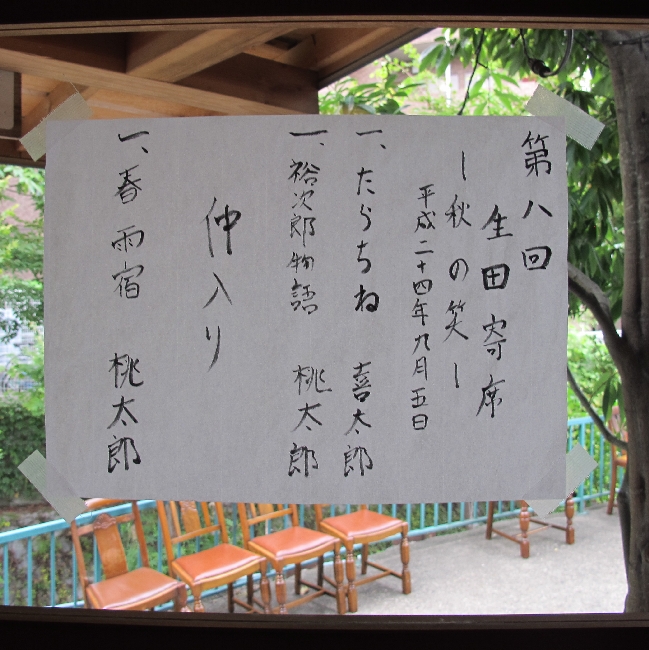 第八回
生田寄席
ー秋の笑ー
平成二十四年九月五日
一、たらちね 喜太郎
一、裕次郎物語 桃太郎
仲入り
一、春雨宿 桃太郎